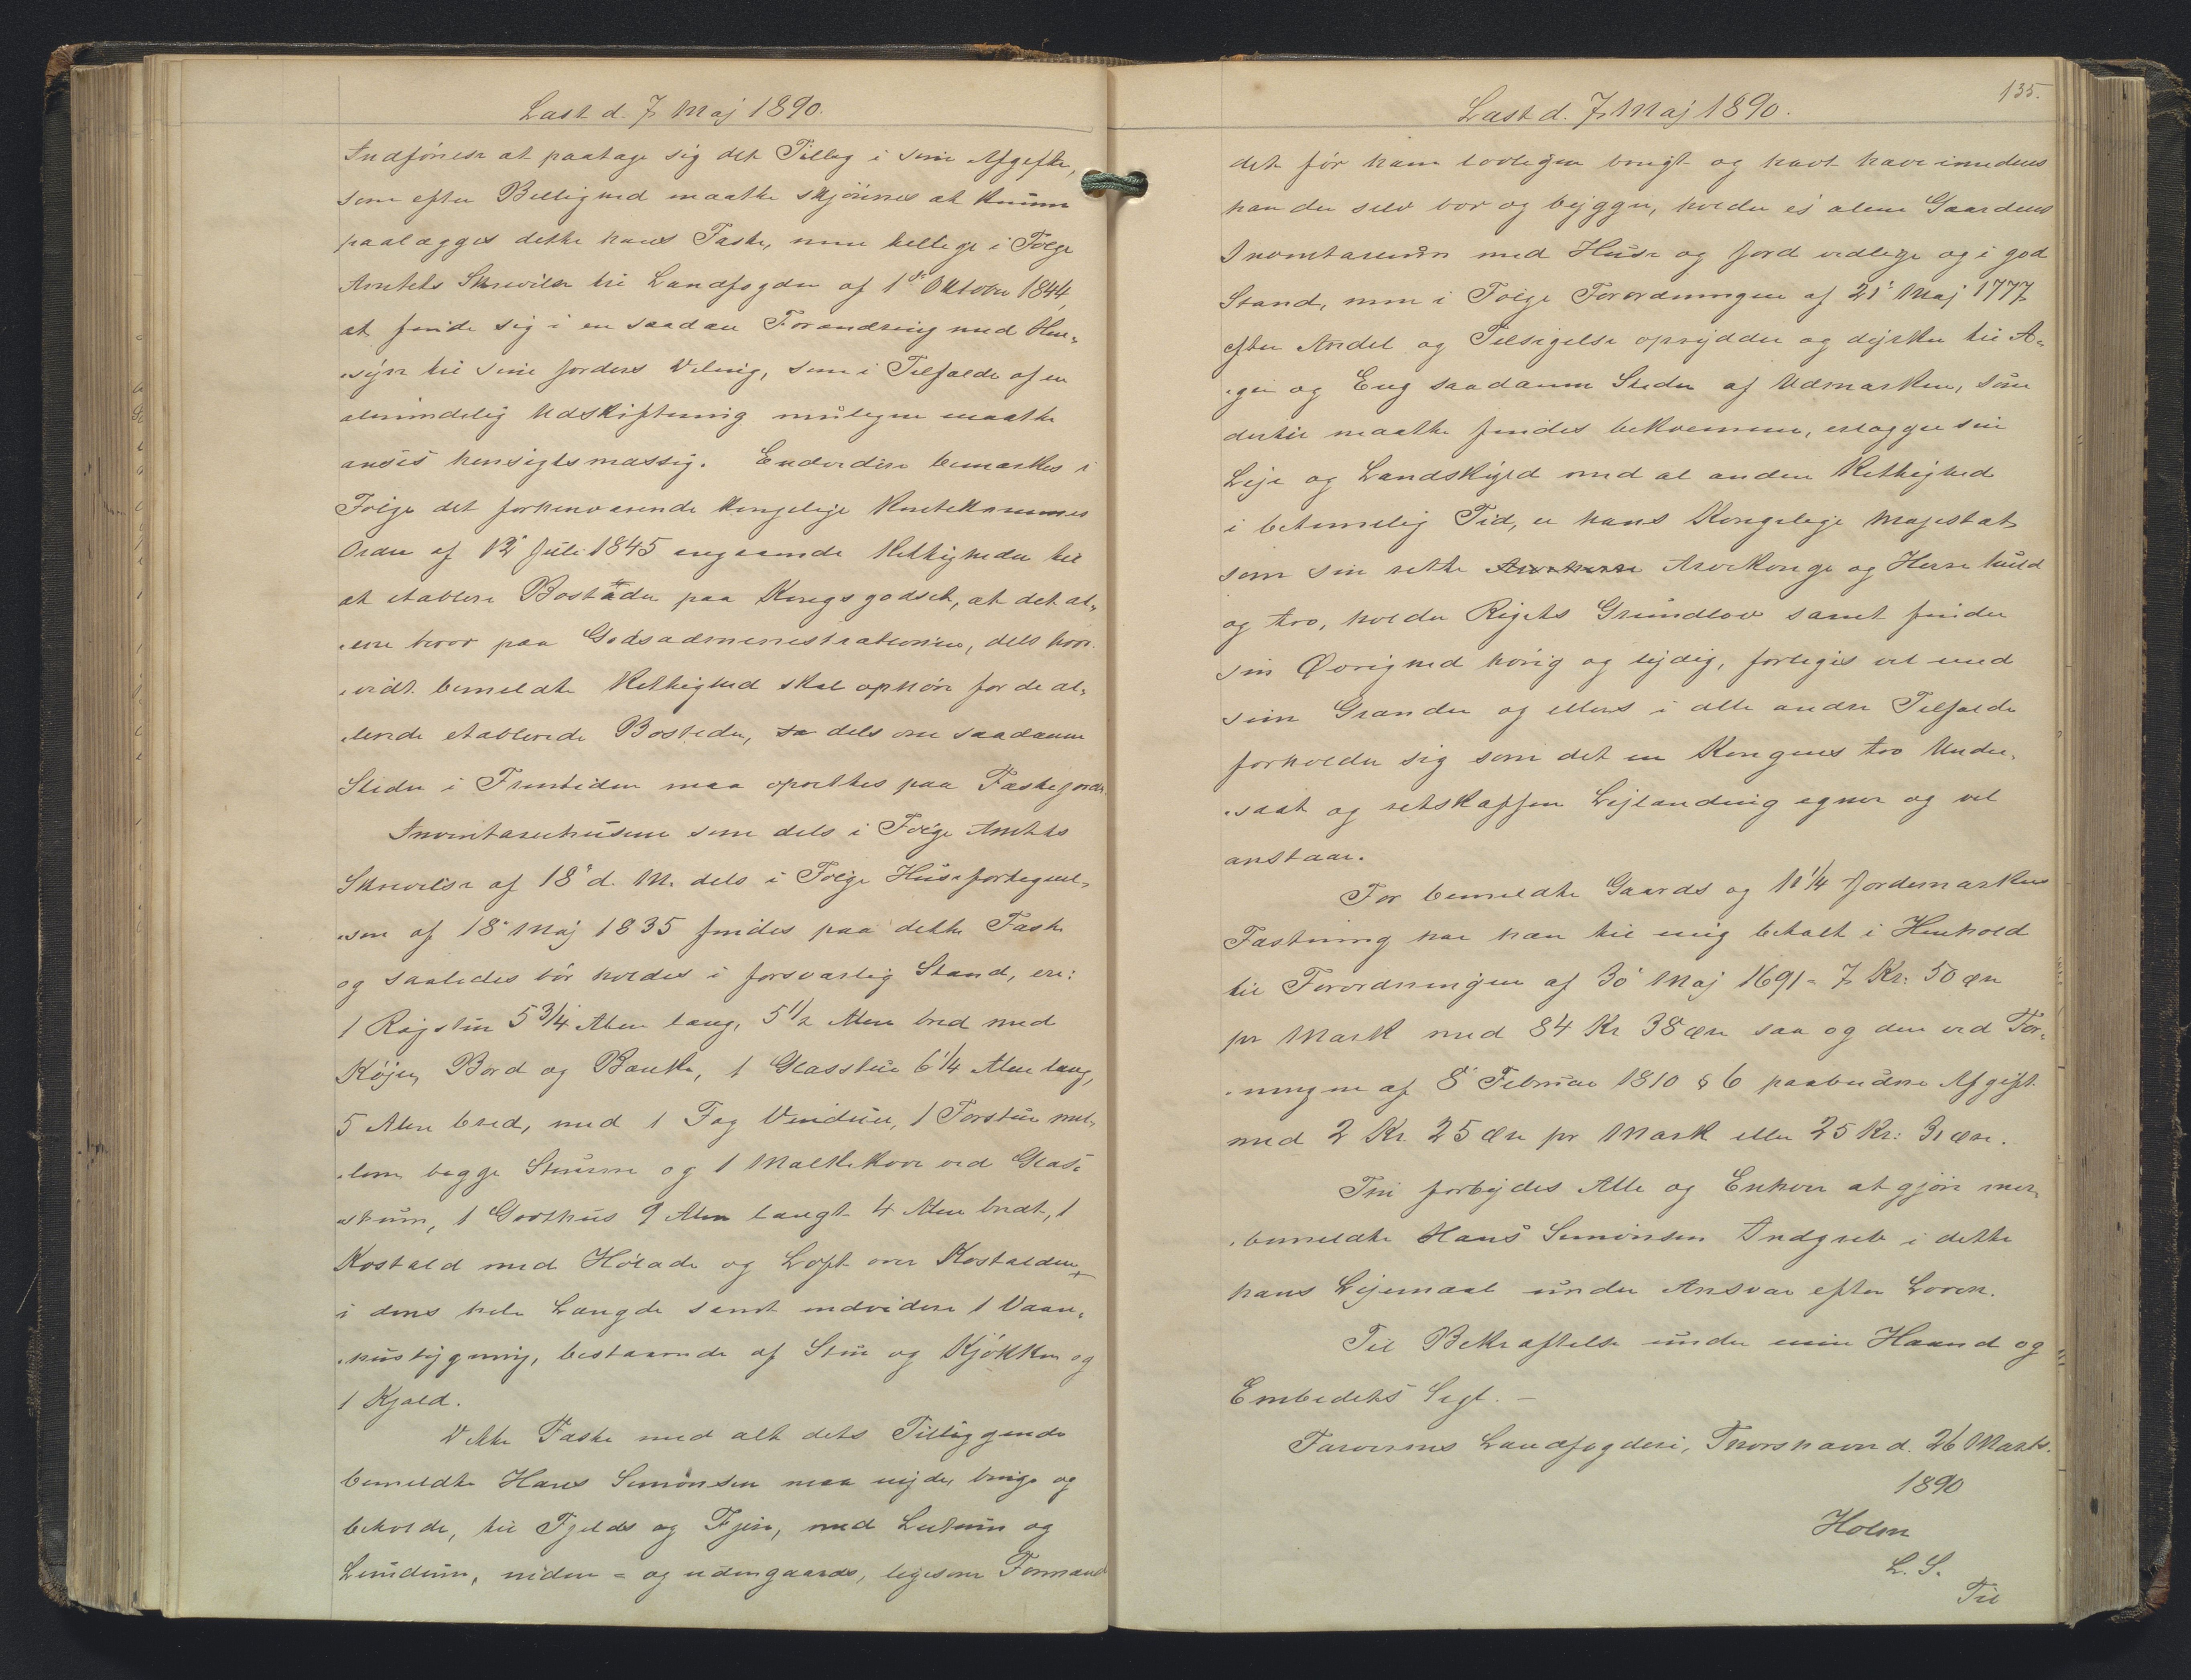 Læst d. 7 Maj 1890.
Indförelse at paatage sig det Tillæg i sine Afgifter,
som efter Billighed maatte skjönnes at kunne
paalægges dette hans Fæste, men tillige i Følge
Amtets Skrivelse til Landfogden af 1ste Oktober 1844,
at finde sig i en saadan Forandring med Hen-
-syn til sine Jorders Deling, som i Tilfælde af en
almindelig Udskiftning muligen maatte
ansés hensigtsmæssig. Endvidere bemærkes i
Følge det forhenværende kongelige Rentekammers
Ordre af 12' Juli 1845 angaaende Rettigheder til
at etablere Bosteder paa Kongsgodset, at det al-
-ene beror paa Godsadministrationen, dels hvor-
-vidt bemeldte Rettighed skal ophöre for de al-
-lerede etablerede Bosteder, dels om saadanne
Steder i Fremtiden maa oprettes paa Fæstejorder.
Inventariehusene som dels i Følge Amtets
Skrivelse af 18' d. M. dels i Følge Husefortegnel-
-sen af 18' Maj 1835 findes paa dette Fæste
og saaledes bör holdes i forsvarlig Stand, ere:
1 Røgstue 5 3/4 Alen lang, 5 1/2 Alen bred med
Køjer, Bord og Bænke, 1 Glasstue 6 1/4 Alen lang,
5 Alen bred, med 1 Fag Vinduer, 1 Forstue mel-
-lem begge Stuerne og 1 Mælkekove ved Glas-
-stuen, 1 Grothus 9 Alen langt 4 Alen bredt, 1
Kostald med Hölade og Loft over Kostalden
i dens hele Længde samt endvidere 1 Vaan-
-husbygning, bestaaende af Stue og Kjökken og
1 Kjald.
Dette Fæste med alt dets Tilliggende
bemeldte Hans Simonsen maa nyde, bruge og
beholde, til Fjelds og Fjære, med Lutum og
Lundum, inden- og udengaards, ligesom Formand
135.
Læst d. 7 Maj 1890.
det för ham lovligen brugt og havt have imedens
han der selv bor og bygger, holder ej alene Gaardens
Inventarium med Huse og Jord vedlige og i god
Stand, men i Følge Forordningen af 21' Maj 1777
efter Andel og Tilsigelse oprydder og dyrker til A-
-ger og Eng saadanne Steder af Udmarken, som
dertil maatte findes bekvemme, erlægger sin
Leje og Landskyld med al anden Rettighed
i betimelig Tid, er hans Kongelige Majestæt
som sin rette Arvekonge og Herre huld
og tro, holder Rigets Grundlov samt finder
sin Øvrighed hörig og lydig, forliges vel med
sine Grander og ellers i alle andre Tilfælde
forholder sig som det en Kongens tro Under-
-saat og retskaffen Lejlænding egner og vel
anstaar.
For bemeldte Gaards og 11 1/4 Jordemarkers
Fæstning har han til mig betalt i Henhold
til Forordningen af 30' Maj 1691 - 7 Kr. 50 Øre
pr Mark med 84 Kr 38 Øre saa og den ved For-
-ningen af 8' Februar 1810 § 6 paabudne Afgift
med 2 Kr. 25 Øre pr Mark eller 25 Kr: 31 Øre.
Thi forbydes Alle og Enhver at gjöre mer-
-bemeldte Hans Simonsen Indgreb i dette
hans Lejemaal under Ansvar efter Loven.
Til Bekræftelse under min Haand og
Embedets Segl. -
Færøernes Landfogderi, Thorshavn d. 26 Marts.
1890
Holm
L. S.
Til